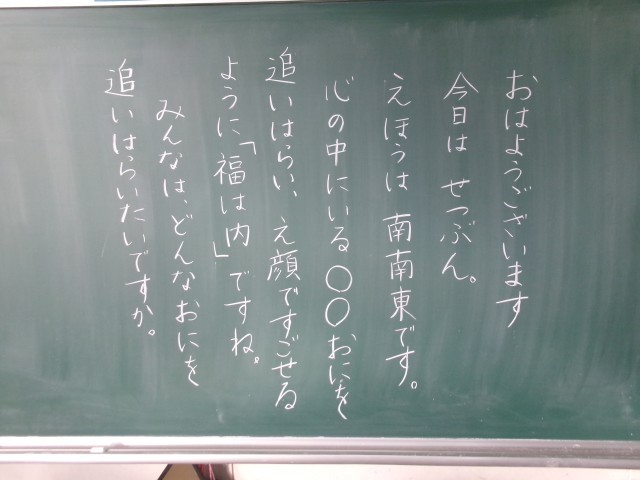 おはようございます
今日は せつぶん。
えほうは 南南東です。
心の中にいる〇〇おにを
追いはらい、え顔ですごせる
ように「福は内」ですね。
みんなは、どんなおにを
追いはらいたいですか。